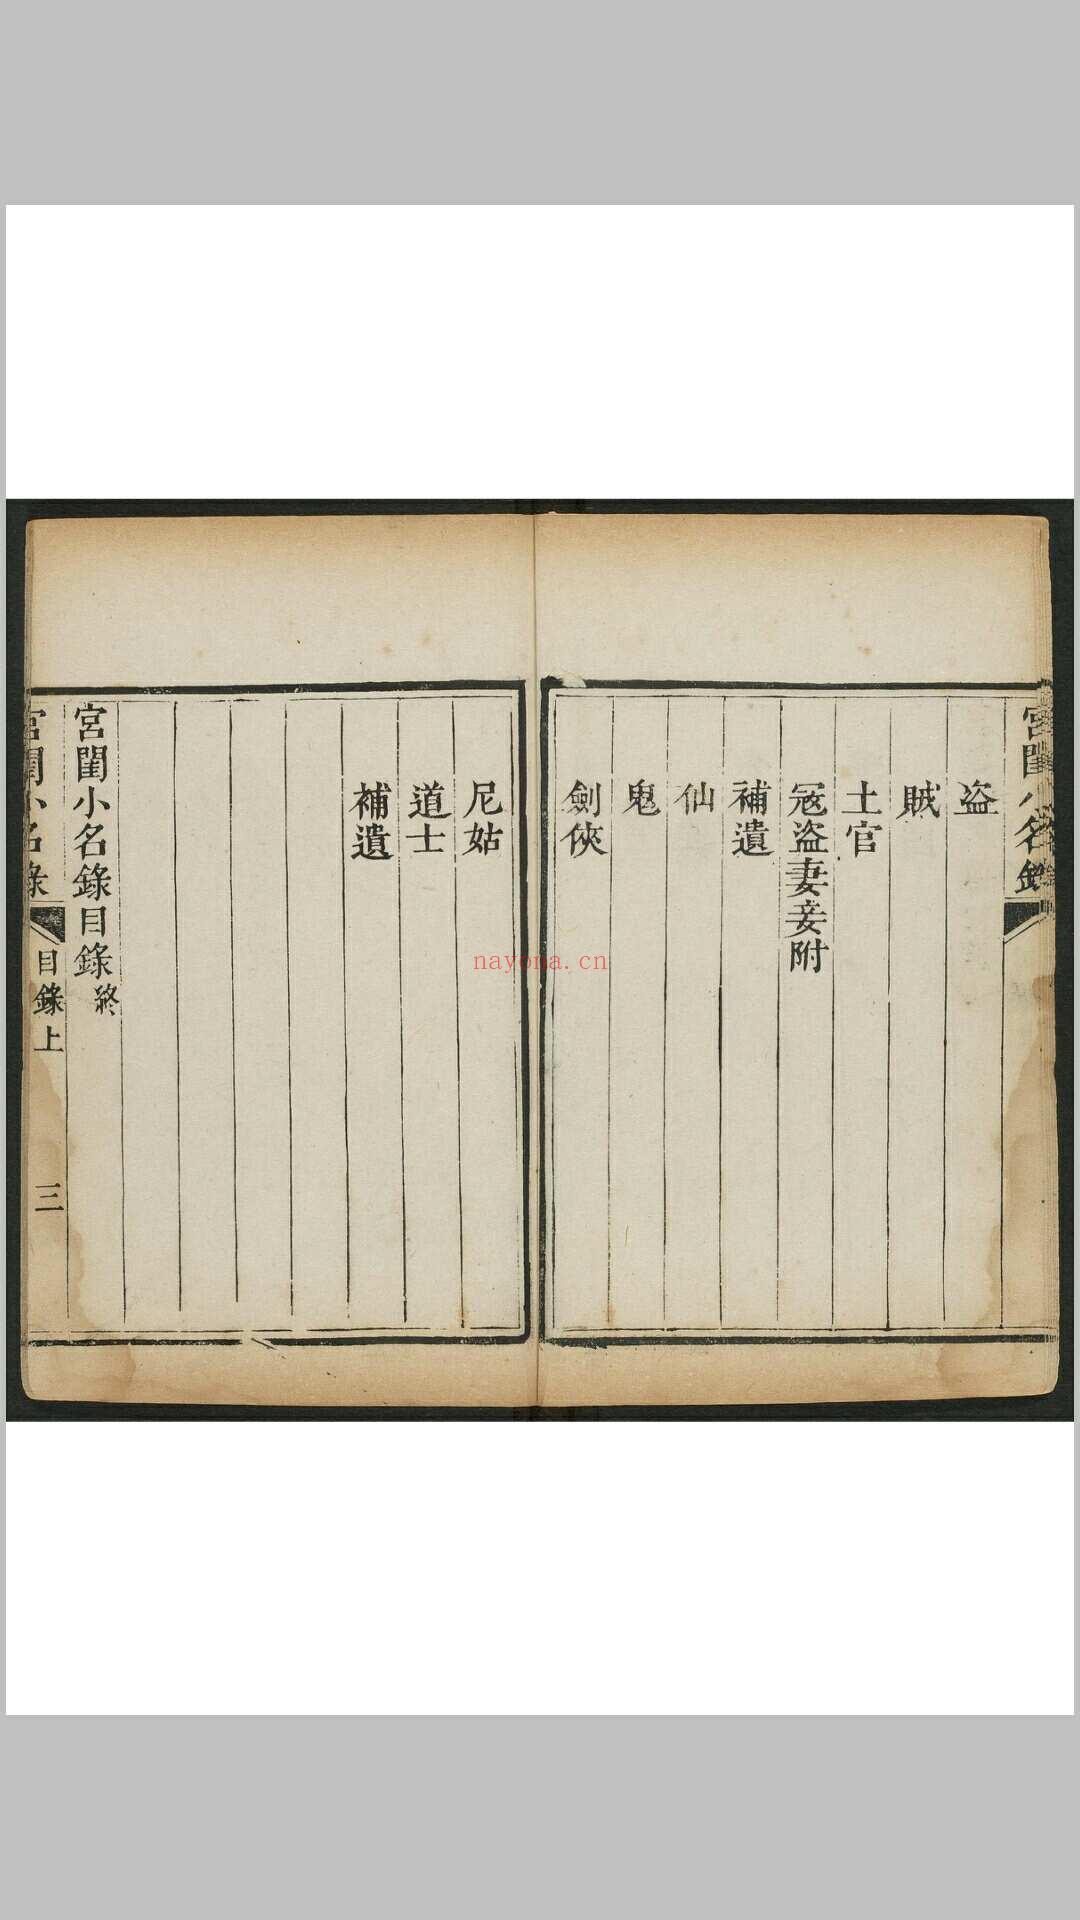 宮閨小名錄
盗
賊
土官
冦盗妻妾附
補遺
仙
鬼
劍俠
尼姑
道士
補遺
宮閨小名錄目錄終
宮閨小名錄
目錄上
三
nayona.cn